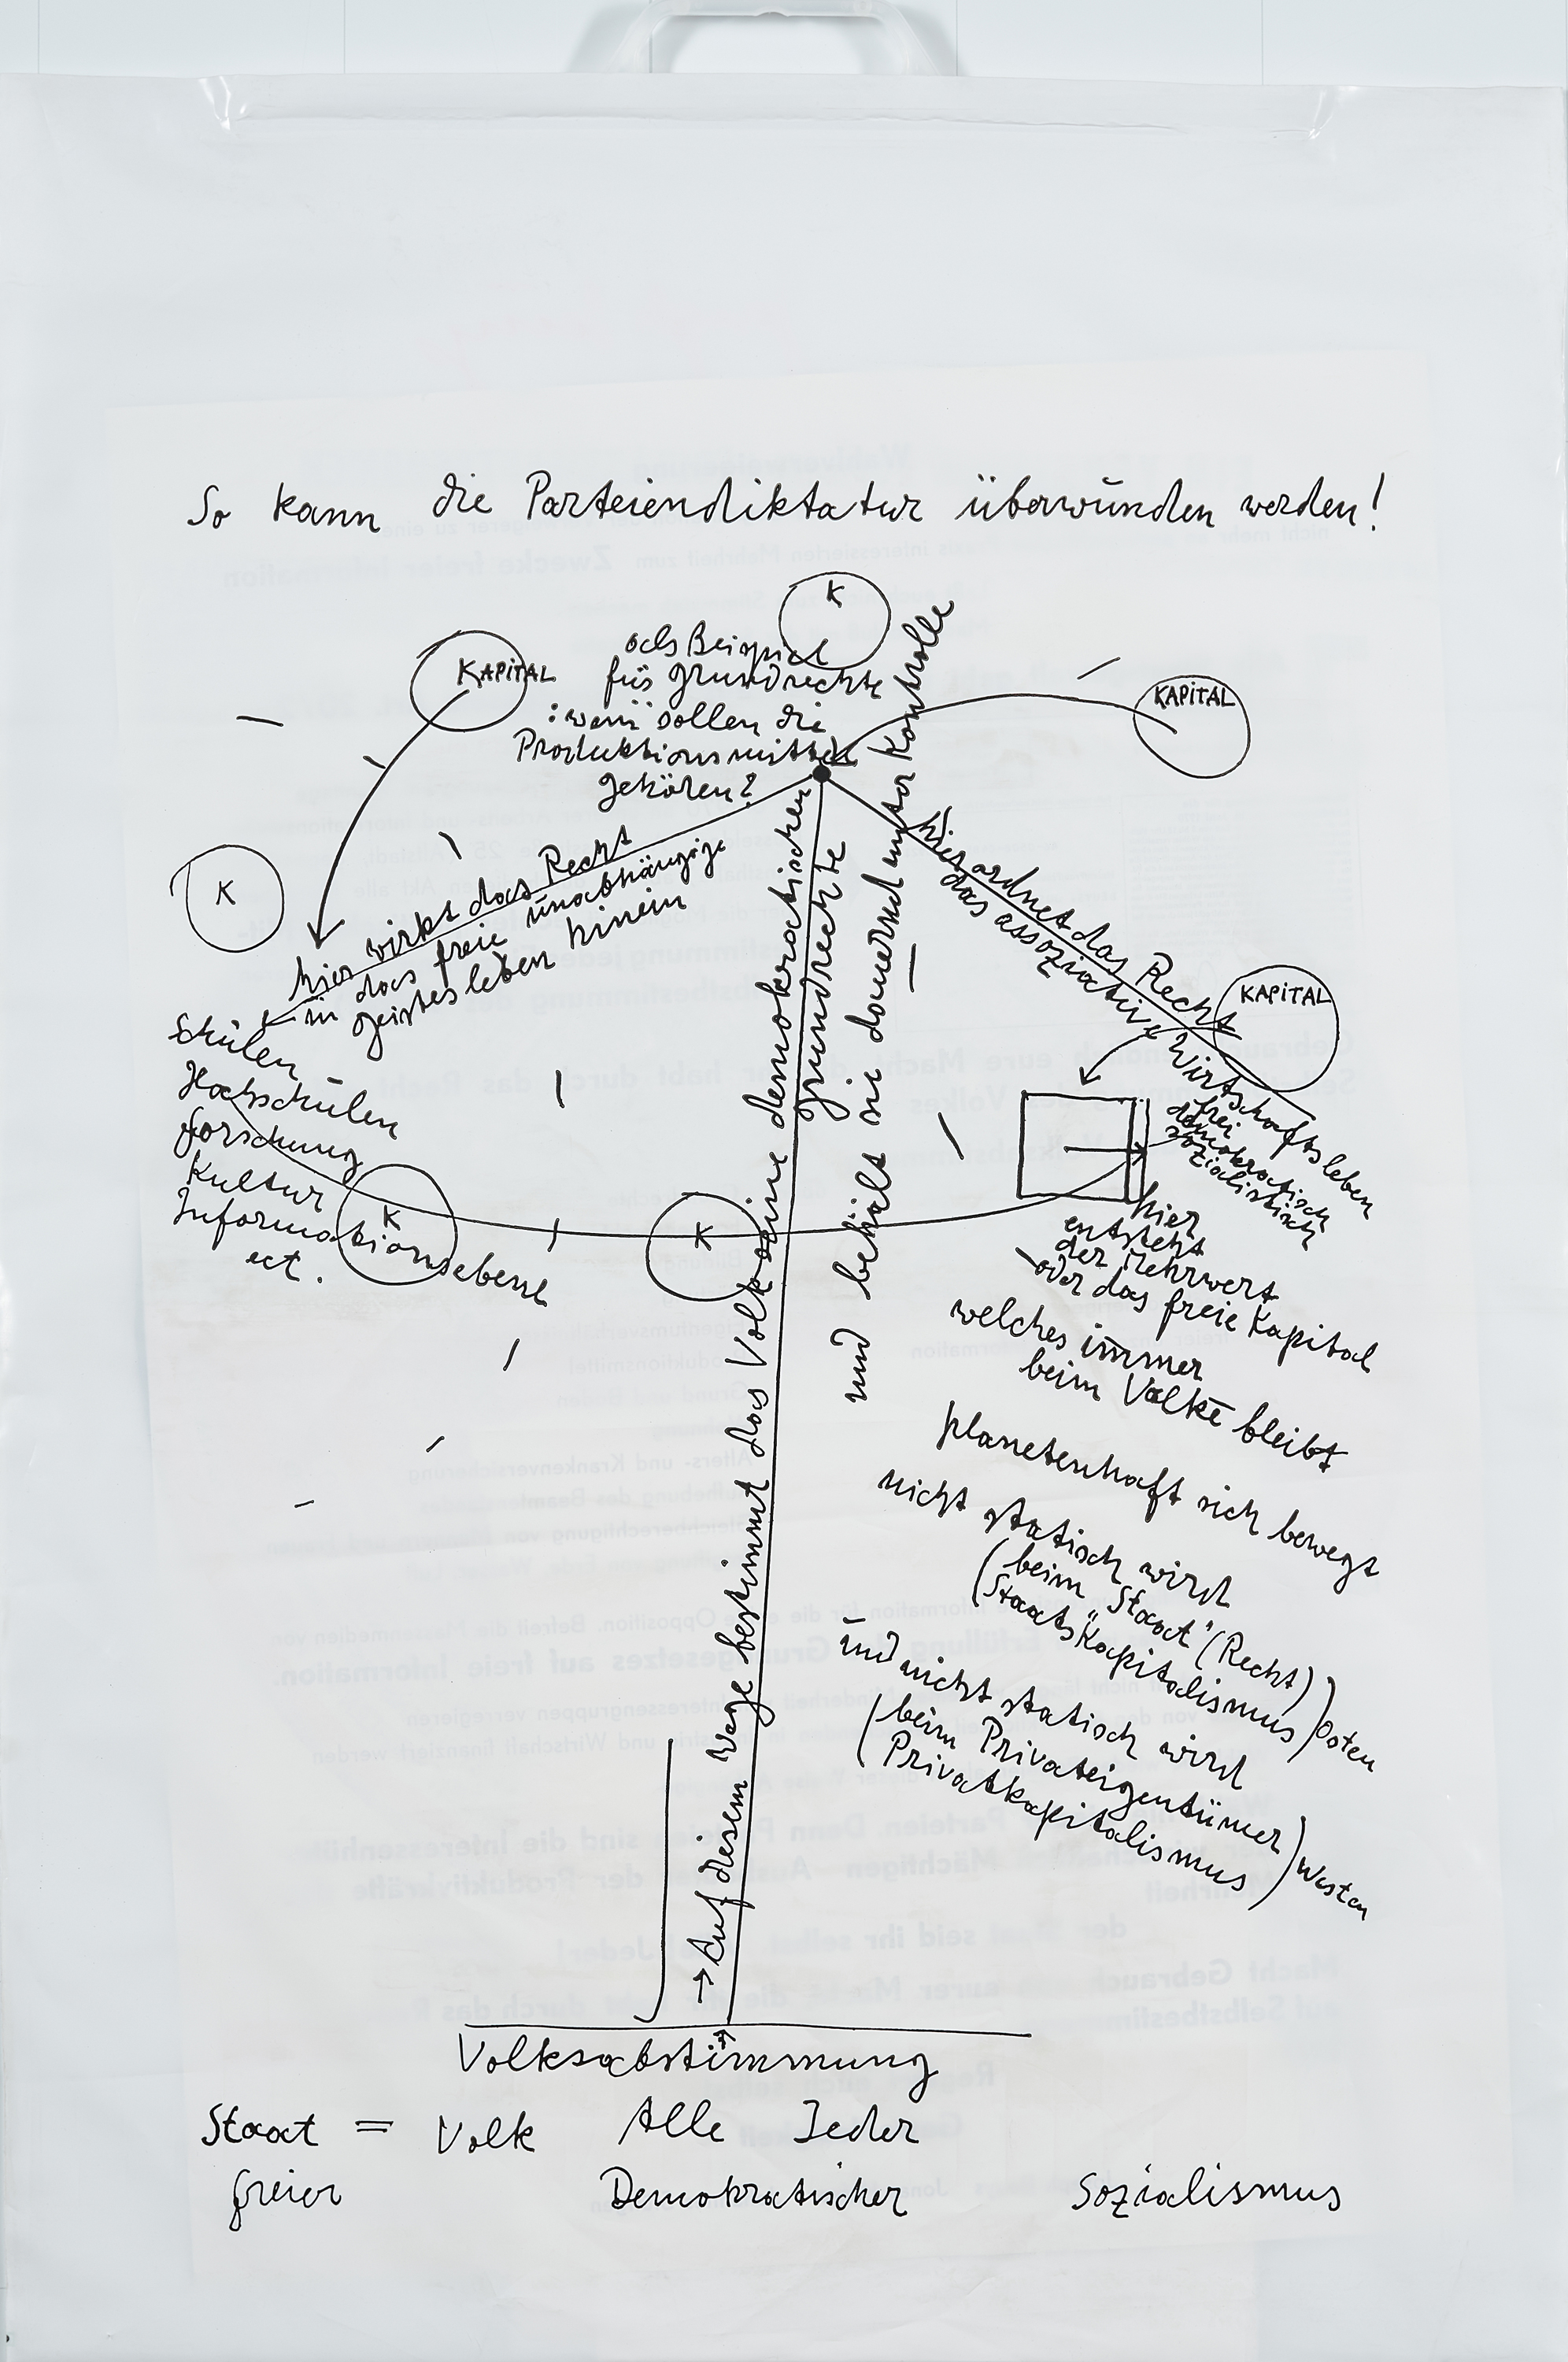 So kann die Parteiendiktatur überwunden werden!
K
KAPITAL
als Beispiel
für Grundrechte
: wem sollen die
Produktionsmittel
gehören?
KAPITAL
K
hier wirkt das Recht
in das freie unabhängige
Geistesleben hinein
Schulen
Hochschulen
Forschung
Kultur
Informationsebene
ect.
K
K
→ Auf diesem Wege bestimmt das Volk seine demokratischen
Grundrechte
und behält sie dauernd unter Kontrolle
hier ordnet das Recht
das assoziative Wirtschaftsleben
KAPITAL
frei
demokratisch
sozialistisch
hier
entsteht
der Mehrwert
oder das freie Kapital
welches immer
beim Volke bleibt
planetenhaft sich bewegt
nicht statisch wird
(beim „Staat“ (Recht))
(Staatskapitalismus) Osten
und nicht statisch wird
(beim Privateigentümer
Privatkapitalismus) Westen
Volksabstimmung
Staat = Volk Alle Jeder
freier Demokratischer Sozialismus